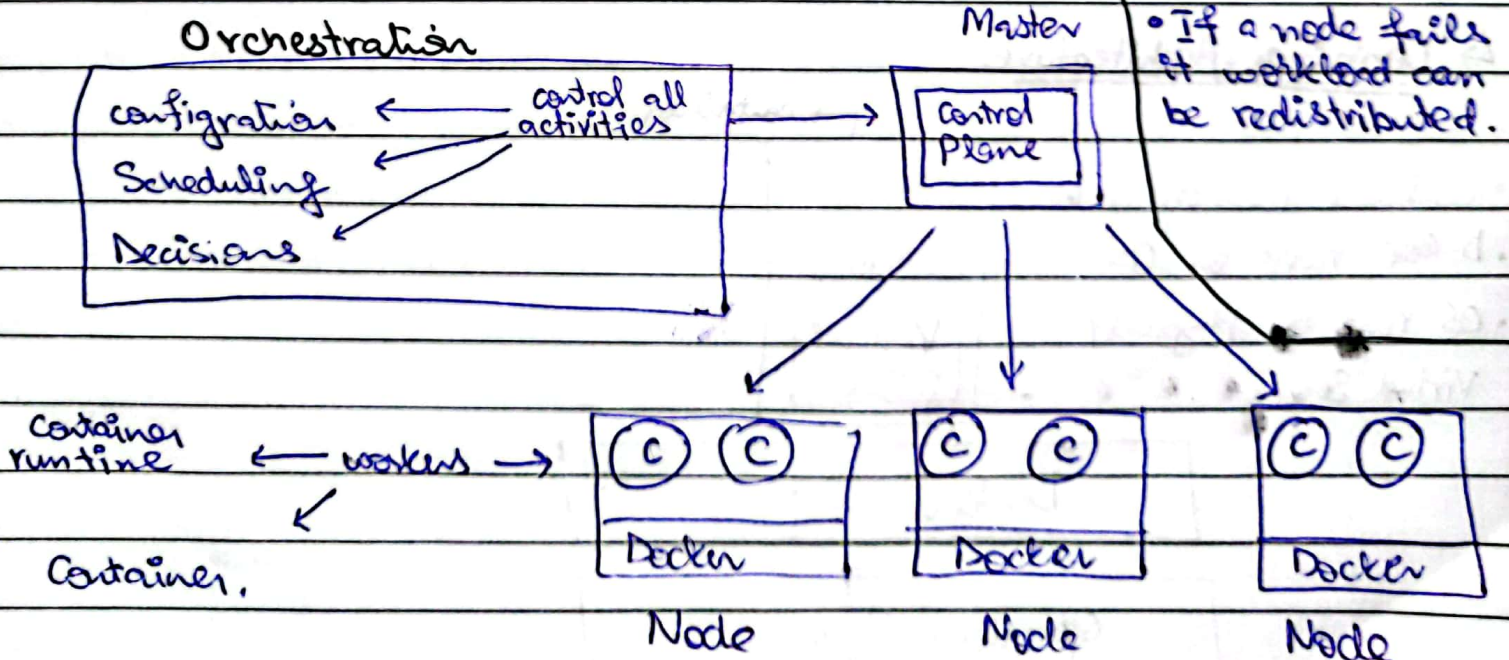 Orchestration
configration
control all
activities
Scheduling
Decisions
Master
Control
Plane
• If a node fails
it workload can
be redistributed.
Container
runtime
workers
Container.
C C
Docker
Node
C C
Docker
Node
C C
Docker
Node